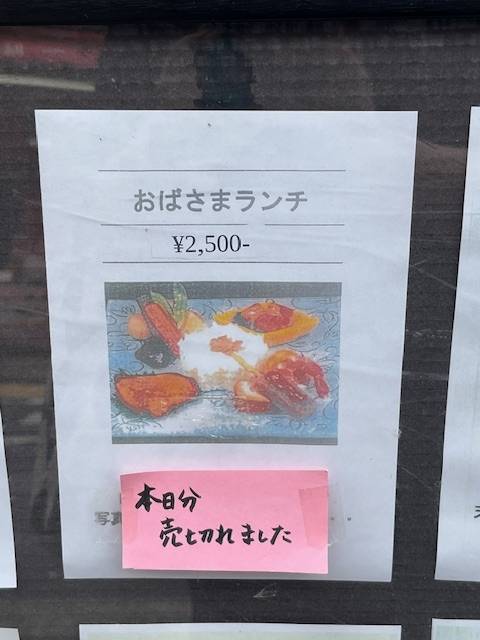 おばさまランチ
¥2,500-
本日分
売切れました
写真